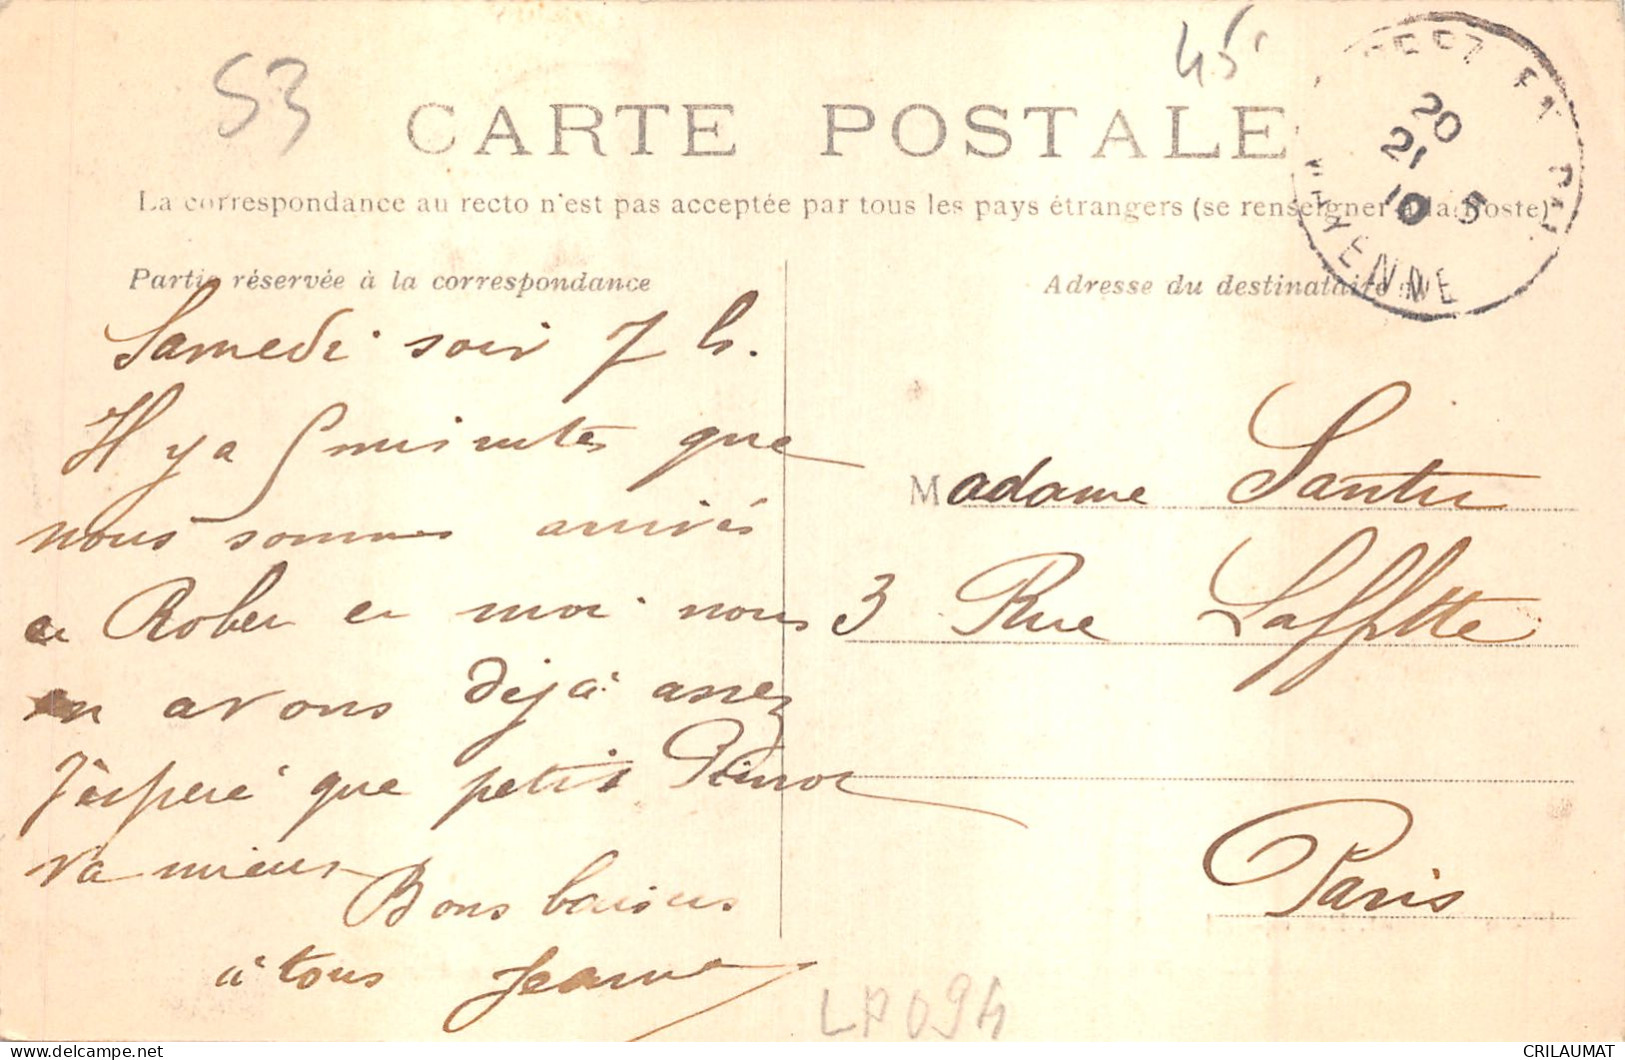 53
45
CARTE POSTALE
La correspondance au recto n'est pas acceptée par tous les pays étrangers (se renseigner à la Poste)
20
21 5
10
MAYENNE
Partie réservée à la correspondance
Adresse du destinataire
Samedi soir 7 h.
Il y a 5 minutes que
nous sommes arrivés
et Rober et moi nous
en avons déjà assez
J'espère que petit
va mieux
Bons baisers
à tous Jeanne
Madame
3 Rue Laffitte
Paris
LP094
CRILAUMAT